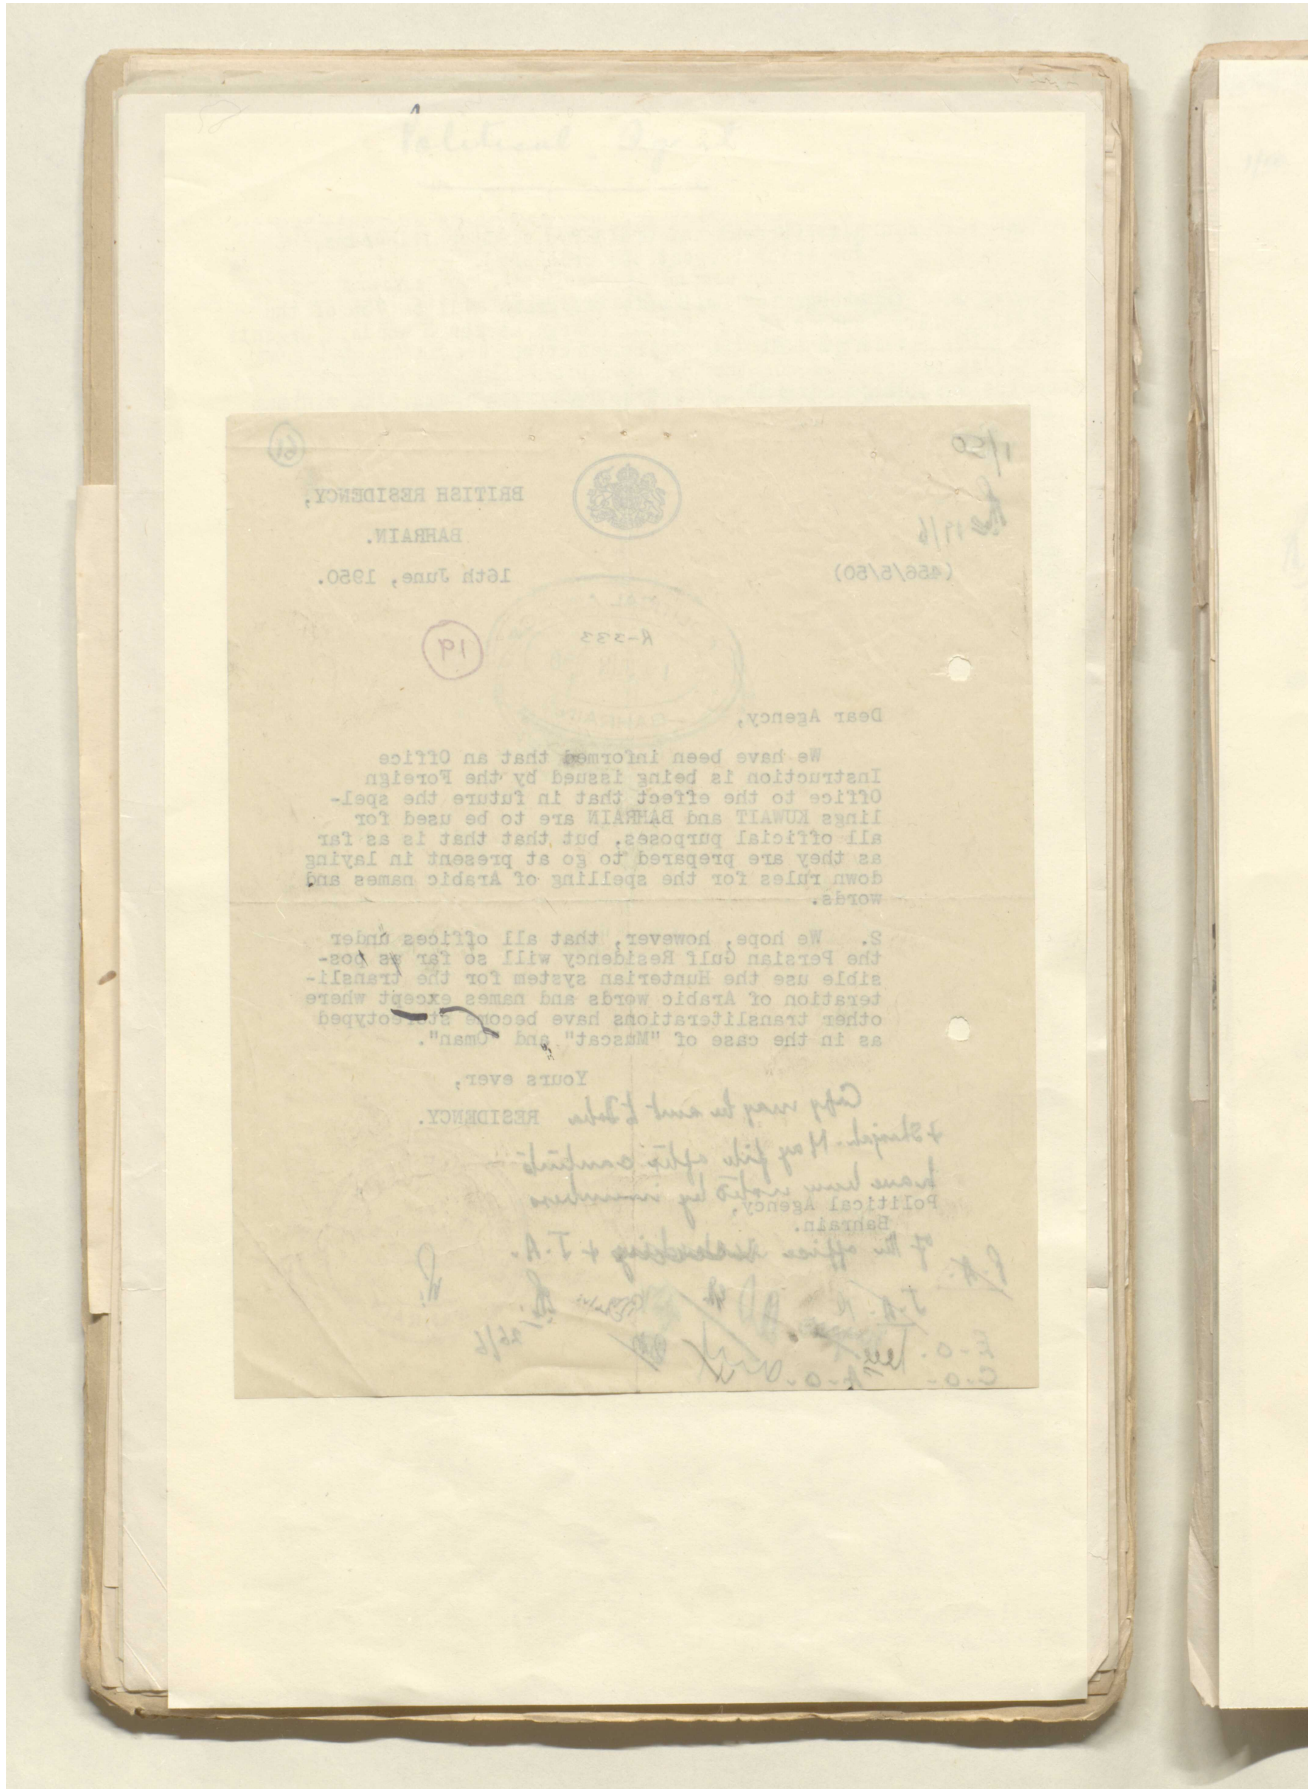 Political Agent
1/50
61
BRITISH RESIDENCY,
BAHRAIN.
17/6
(456/5/50)
16th June, 1950.
R-333
19
BAHRAIN
Dear Agency,
We have been informed that an Office
Instruction is being issued by the Foreign
Office to the effect that in future the spel-
lings KUWAIT and BAHRAIN are to be used for
all official purposes, but that that is as far
as they are prepared to go at present in laying
down rules for the spelling of Arabic names and
words.
2. We hope, however, that all offices under
the Persian Gulf Residency will so far as pos-
sible use the Hunterian system for the transli-
teration of Arabic words and names except where
other transliterations have become stereotyped
as in the case of "Muscat" and "Oman".
Yours ever,
RESIDENCY.
Copy may be sent to Doha
& Sharjah. May file after contents
have been noted by members
Political Agency,
Bahrain.
of the office including & J.A.
P.A.
J.A.
26/6
E.O.
C.O. A.O.